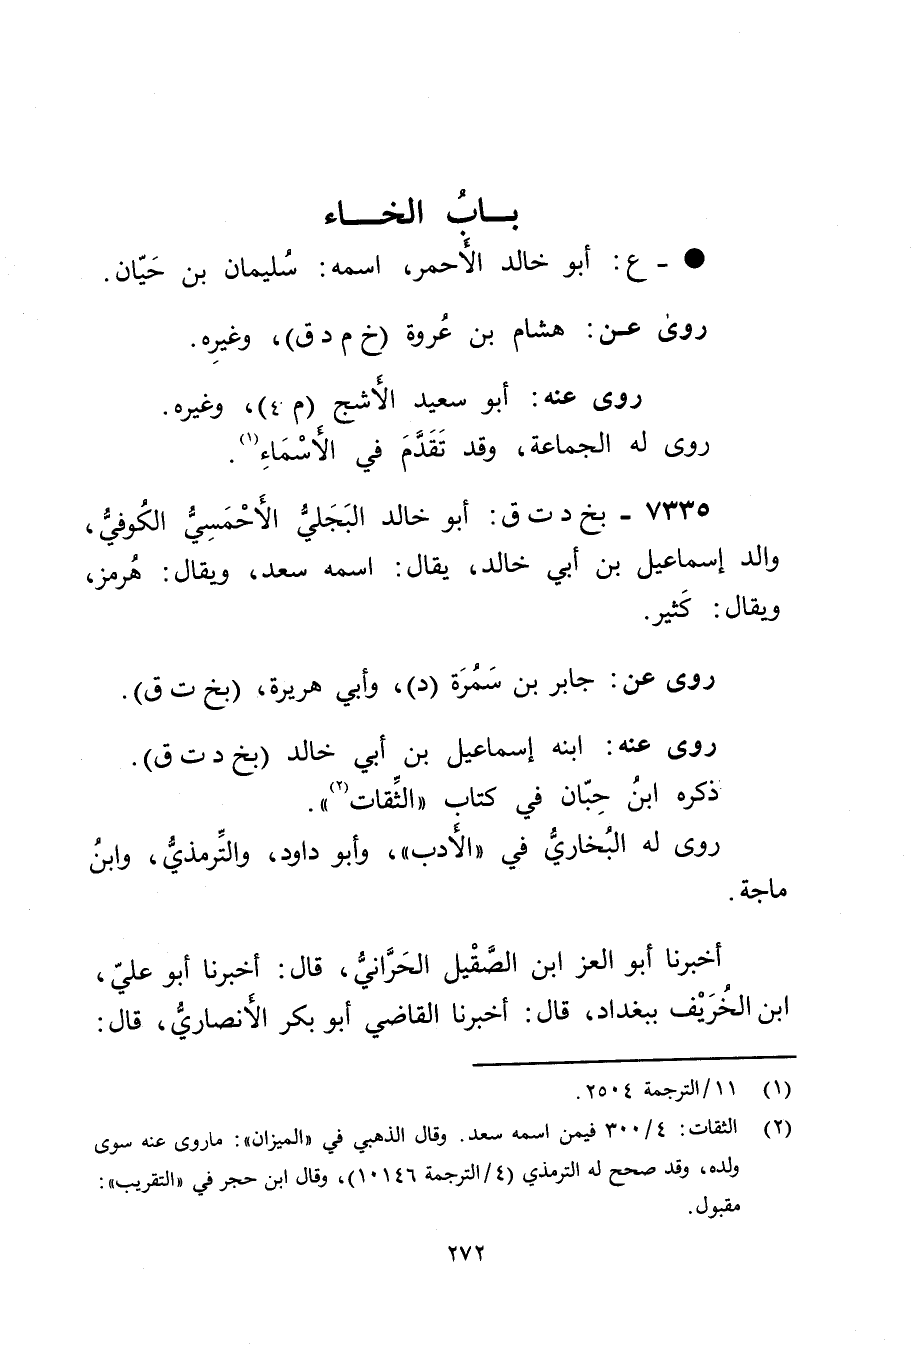 بـــابُ الخـــاء
● ـ ع: أبو خالد الأَحمر، اسمه: سُليمان بن حَيّان.
روىٰ عـن: هشام بن عُروة (خ م د ق)، وغيرِه.
روى عنه: أبو سعيد الأَشج (م ٤)، وغيره.
روى له الجماعة، وقد تَقَدَّمَ في الأَسْمَاءِ(١).
٧٣٣٥ ـ بخ د ت ق: أبو خالد البَجَليُّ الأَحْمَسِيُّ الكُوفيُّ،
والد إسماعيل بن أبي خالد، يقال: اسمه سعد، ويقال: هُرمز،
ويقال: كَثير.
روى عن: جابر بن سَمُرَة (د)، وأبي هريرة، (بخ ت ق).
روى عنه: ابنه إسماعيل بن أبي خالد (بخ د ت ق).
ذكره ابنُ حِبّان في كتاب «الثِّقات(٢)».
روى له البُخاريُّ في «الأَدب»، وأبو داود، والتِّرمذيُّ، وابنُ
ماجة.
أخبرنا أبو العز ابن الصَّقْيل الحَرَّانيُّ، قال: أخبرنا أبو عليّ،
ابن الخُرَيْف ببغداد، قال: أخبرنا القاضي أبو بكر الأَنصاريُّ، قال:
(١) ١١/الترجمة ٢٥٠٤.
(٢) الثقات: ٣٠٠/٤ فيمن اسمه سعد. وقال الذهبي في «الميزان»: ماروى عنه سوى
ولده، وقد صحح له الترمذي (٤/الترجمة ١٠١٤٦)، وقال ابن حجر في «التقريب»:
مقبول.
٢٧٢